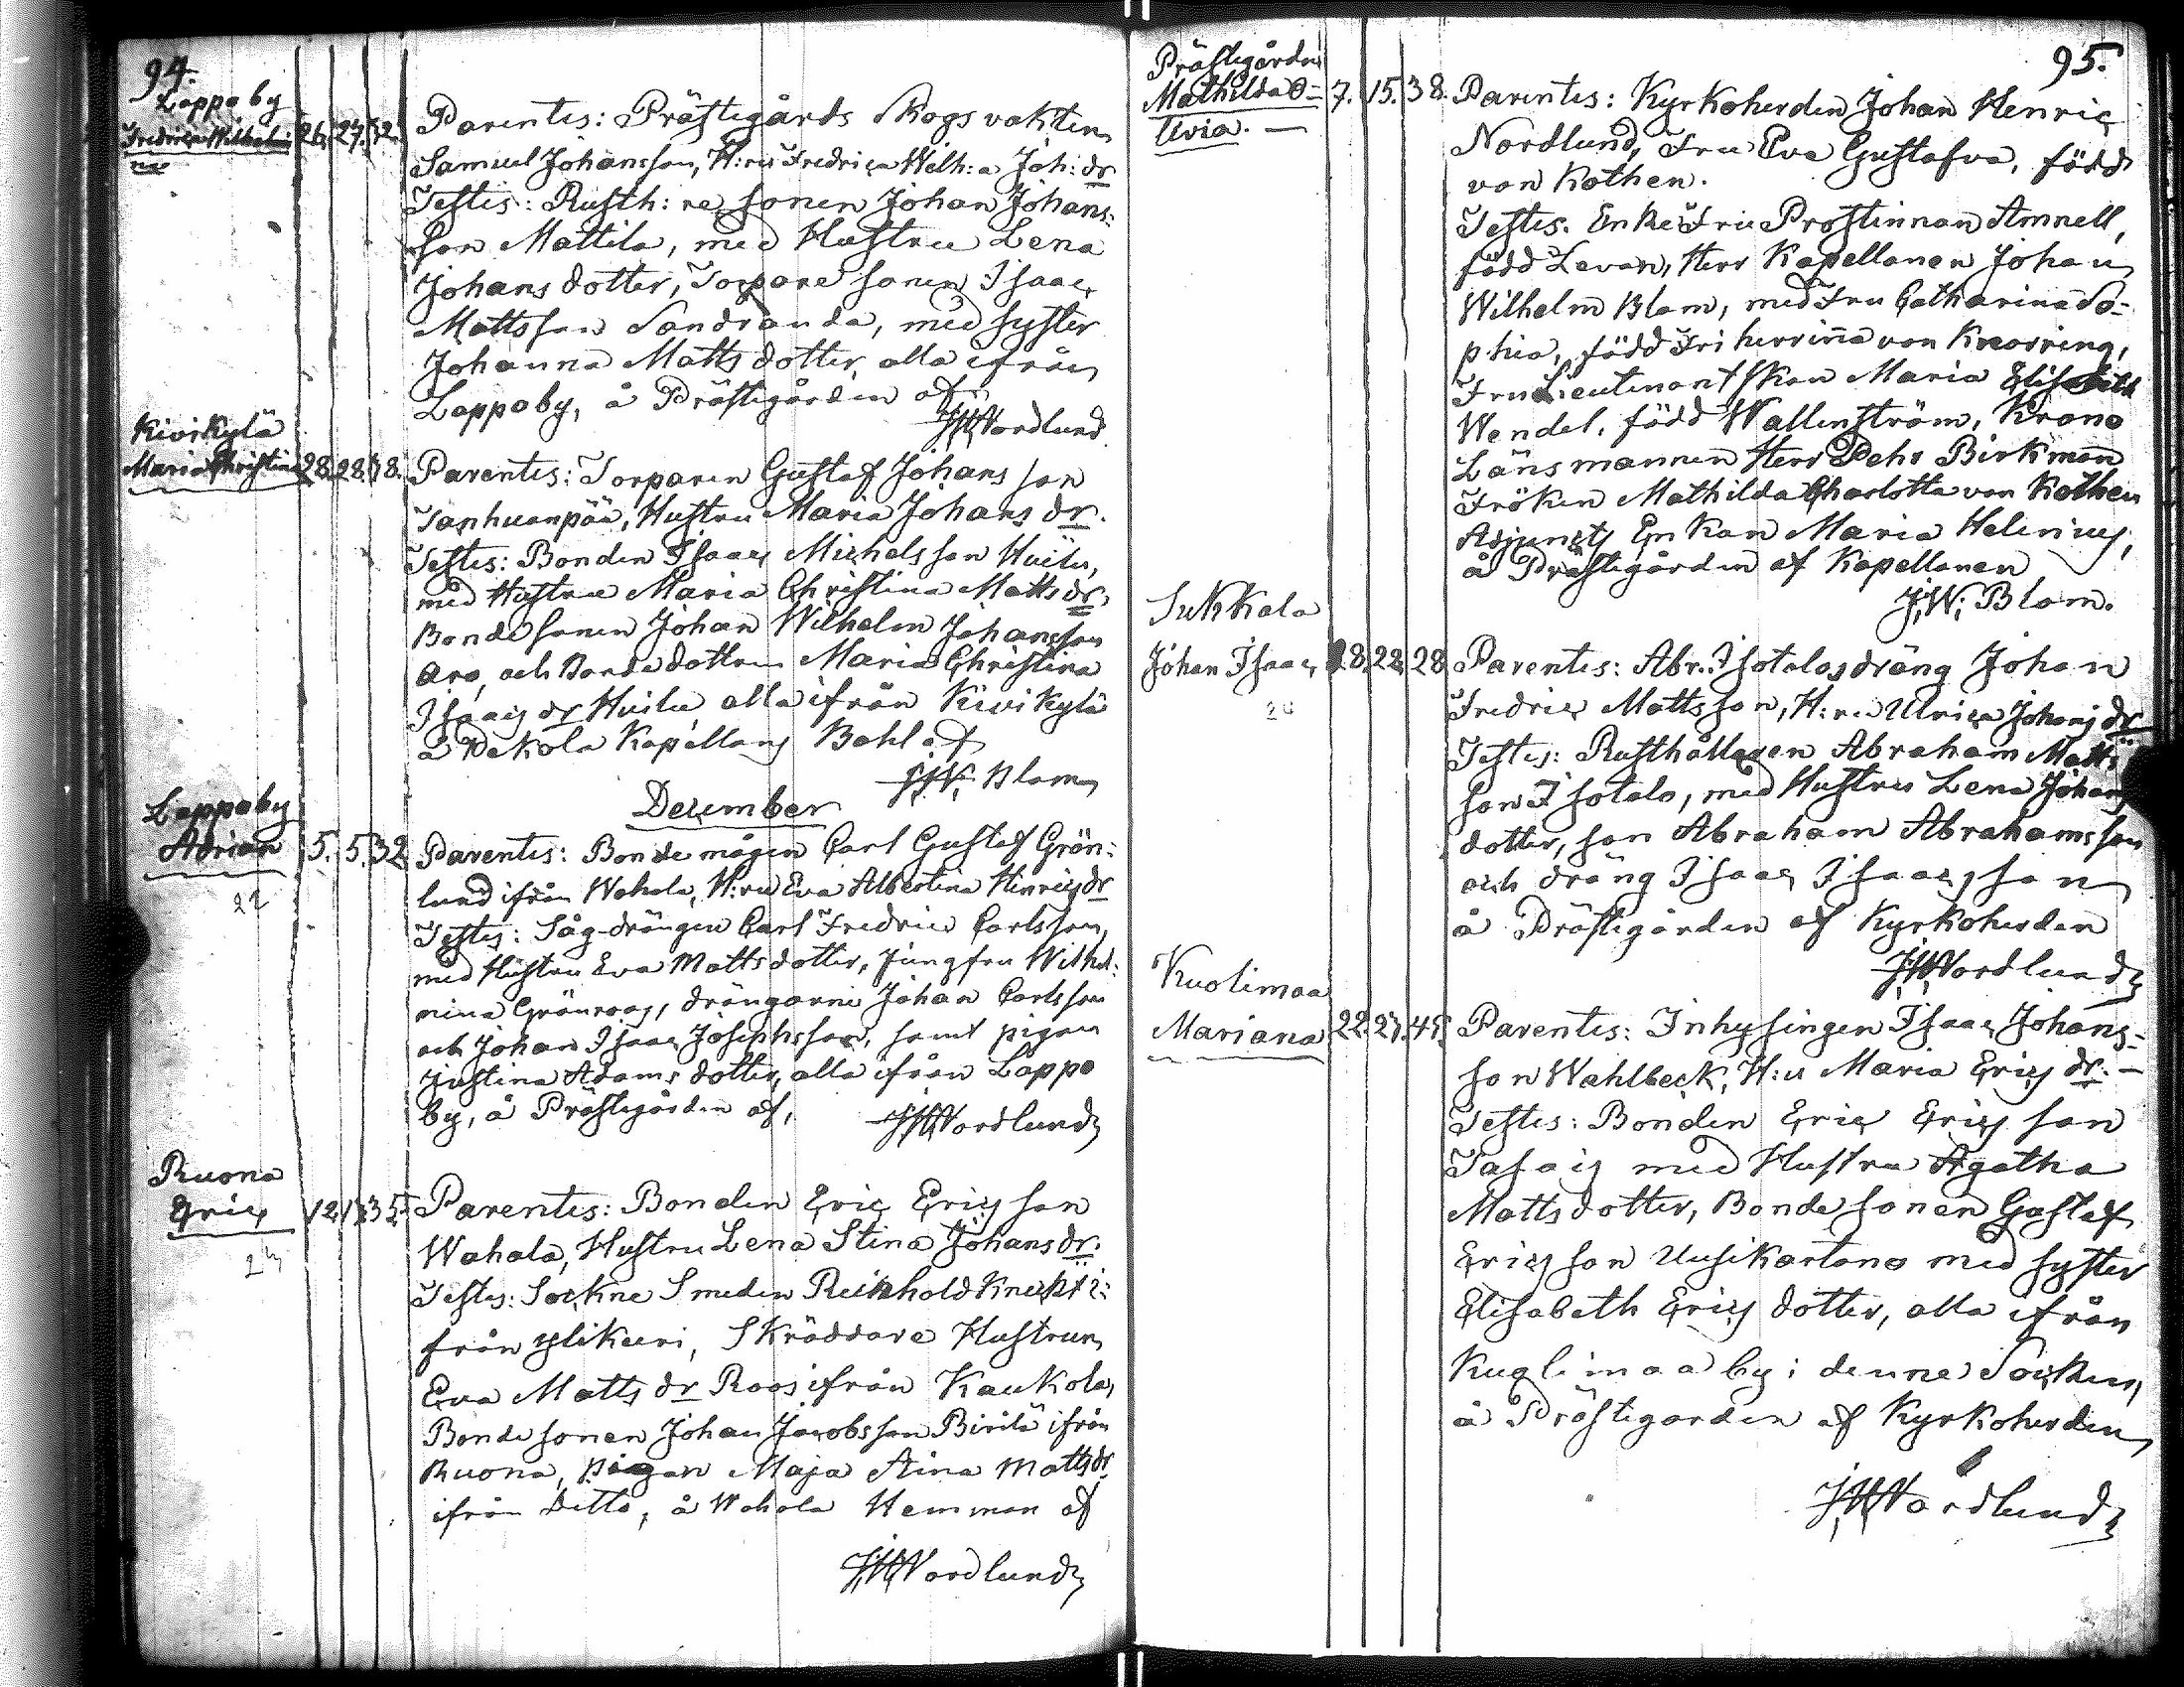 94.
Lappo by
Fredrica Wilhelmi
na
26. 27. 32.
Parentes: Prästegårds Skogs vakten
Samuel Johansson, H:ru Fredrica Wilh:a Joh: dr
Testes: Rusth:re sonen Johan Johans:
son Mattila, med Hustru Lena
Johans dotter, Torpare sonen Isaac
Mattsson Sandranda, med syster
Johanna Matts dotter, alla ifrån
Lappoby, å Prästegården af
JHNordlund
Kivikylä
Maria Christina
28. 28. 38.
Parentes: Torparen Gustaf Johans son
Tanhuanpää, Hustru Maria Johans dr.
Testes: Bonden Isaac Michels son Huilu,
med Hustru Maria Christina Matts dr,
Bonde sonen Johan Wilhelm Johansson
Aro, och Bonde dottren Maria Christina
Isaacs dr Huilu alla ifrån Kivikylä
å Pekola Kapellans Bohl af
J.W. Blom
December
Lappoby
Adrian
5. 5. 32
22
Parentes: Bonde mågen Carl Gustaf Grön:
lund ifrån Wahala, H:ru Eva Albertina Hinrics dr
Testes: Såg-drängen Carl Fredric Carlsson,
med Hustru Eva Matts dotter, Jungfru Wilhel:
mina Grönroos, drängarne Johan Carlsson
och Johan Isaac Josephsson, samt pigan
Justina Adams dotter, alla ifrån Lappo
by, å Prästegården af,
JHNordlund
Ruona
Eric
12. 13. 35.
Parentes: Bonden Eric Erics son
Wahala, Hustru Lena Stina Johans dr.
Testes: Sockne Smeden Reinhold Knekt i:
från Ylikeeri, Skräddare Hustrun
Eva Matts dr Roos ifrån Kaukola,
Bonde sonen Johan Jacobsson Birilä ifrån
Ruona, pigan Maja Stina Matts dr
ifrån Ditto, å Wahala Hemman af
JHNordlund
95.
Prästegården
Mathilda O=
livia.
7. 15. 38.
Parentes: Kyrkoherden Johan Henric
Nordlund, Fru Eva Gustafva, född
von Kothen.
Testes. Enke Fru Prostinnan Amnell,
född Levan, Herr Kapellanen Johan
Wilhelm Blom, med Fru Catharina So=
phia, född Friherrinna von Knorring,
Fru Lieutenantskan Maria Elisabeth
Wendel, född Wallenström, Krono
Länsmannen Herr Pehr Birkman
Fröken Mathilda Charlotta von Kothen
Adjuncts Enkan Maria Helenius,
å Prästegården af Kapellanen
J.W. Blom.
Sukkala
Johan Isaac
18. 22. 28.
Parentes: Abr. Isotalos dräng Johan
Fredric Mattsson, H:ru Ulrica Johans dr
Testes: Rusthållaren Abraham Matts
son Isotalo, med Hustru Lena Johans
dotter, son Abraham Abrahamsson
och dräng Isaac Isaacsson
å Prästegården af Kyrkoherden
JHNordlund
Kuolimaa
Mariana
22. 27. 45.
Parentes: Inhysingen Isaac Johans=
son Wahlbeck, H:u Maria Erics dr.
Testes: Bonden Eric Erics son
med Hustru Agatha
Matts dotter, Bonde sonen Gustaf
Ericsson Uusikartano med syster
Elisabeth Erics dotter, alla ifrån
Kuolimaa by i denne Socken,
å Prästegården af Kyrkoherden
JHNordlund